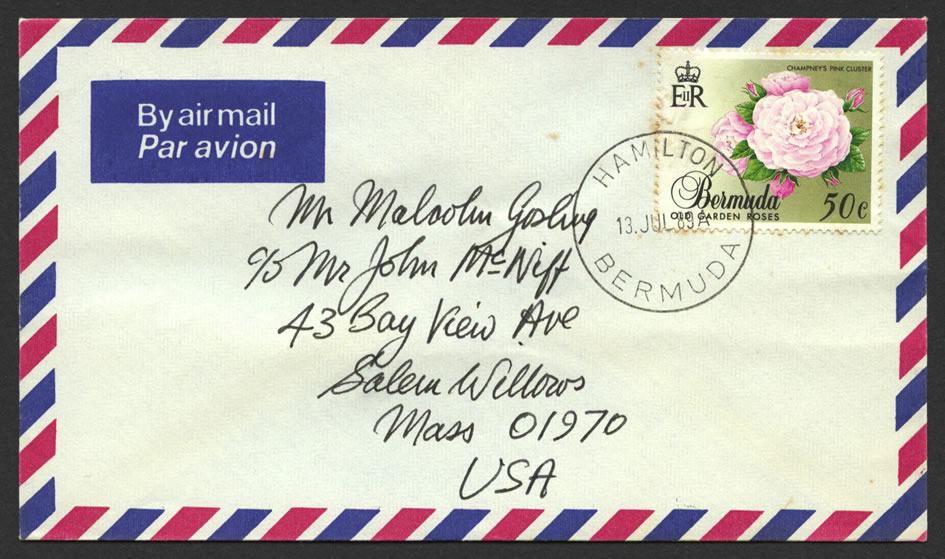 By air mail
Par avion
CHAMPNEY'S PINK CLUSTER
EIIR
Bermuda
OLD GARDEN ROSES
50c
HAMILTON
13.JUL89A
BERMUDA
Mr Malcolm Gosling
c/o Mr John McNiff
43 Bay View Ave
Salem Willows
Mass 01970
USA